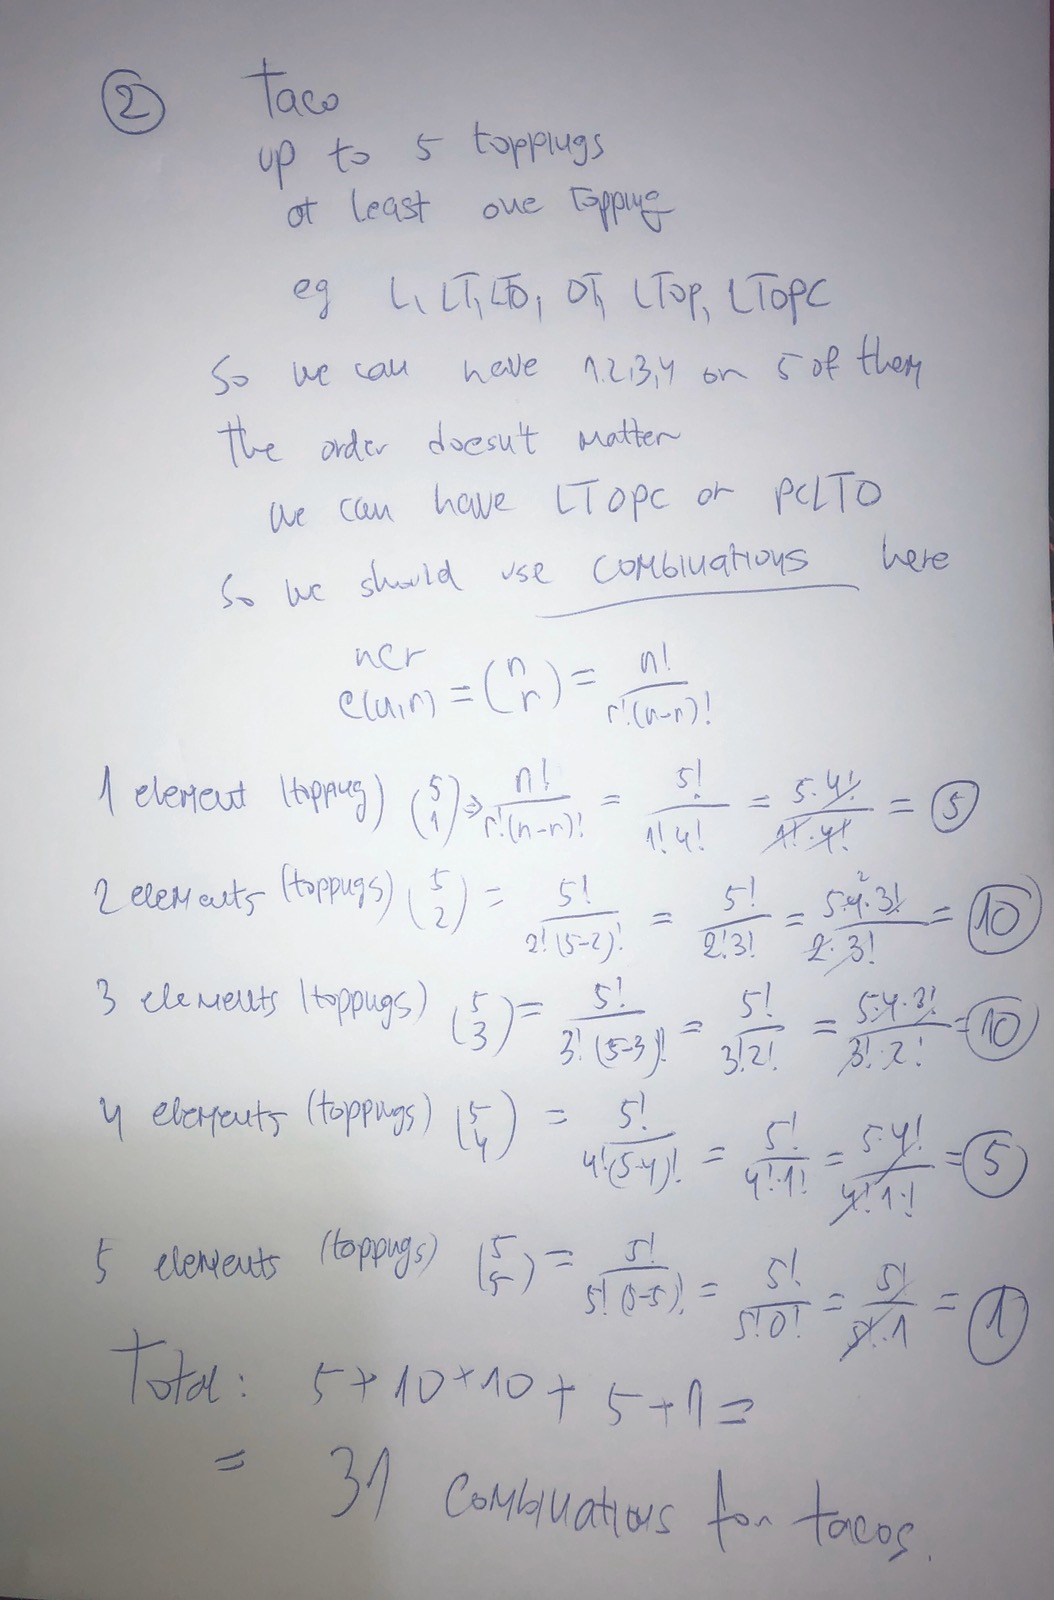 2 Taco
up to 5 toppings
at least one topping
eg L, LT, LTO, OT, LTOP, LTOPC
So we can have 1,2,3,4 or 5 of them
The order doesn't matter
We can have LTOPC or PCLTO
So we should use combinations here
nCr
C(n,r) = (n r) = n!/r!(n-r)!
1 element (topping) (5 1) => n!/r!(n-r)! = 5!/1!4! = 5·4!/1!·4! = 5
2 elements (toppings) (5 2) = 5!/2!(5-2)! = 5!/2!3! = 5·4²·3!/2·3! = 10
3 elements (toppings) (5 3) = 5!/3!(5-3)! = 5!/3!2! = 5·4·3!/3!·2! = 10
4 elements (toppings) (5 4) = 5!/4!(5-4)! = 5!/4!·1! = 5·4!/4!·1! = 5
5 elements (toppings) (5 5) = 5!/5!(5-5)! = 5!/5!0! = 5!/5!·1 = 1
Total: 5+10+10+5+1=
= 31 combinations for tacos.